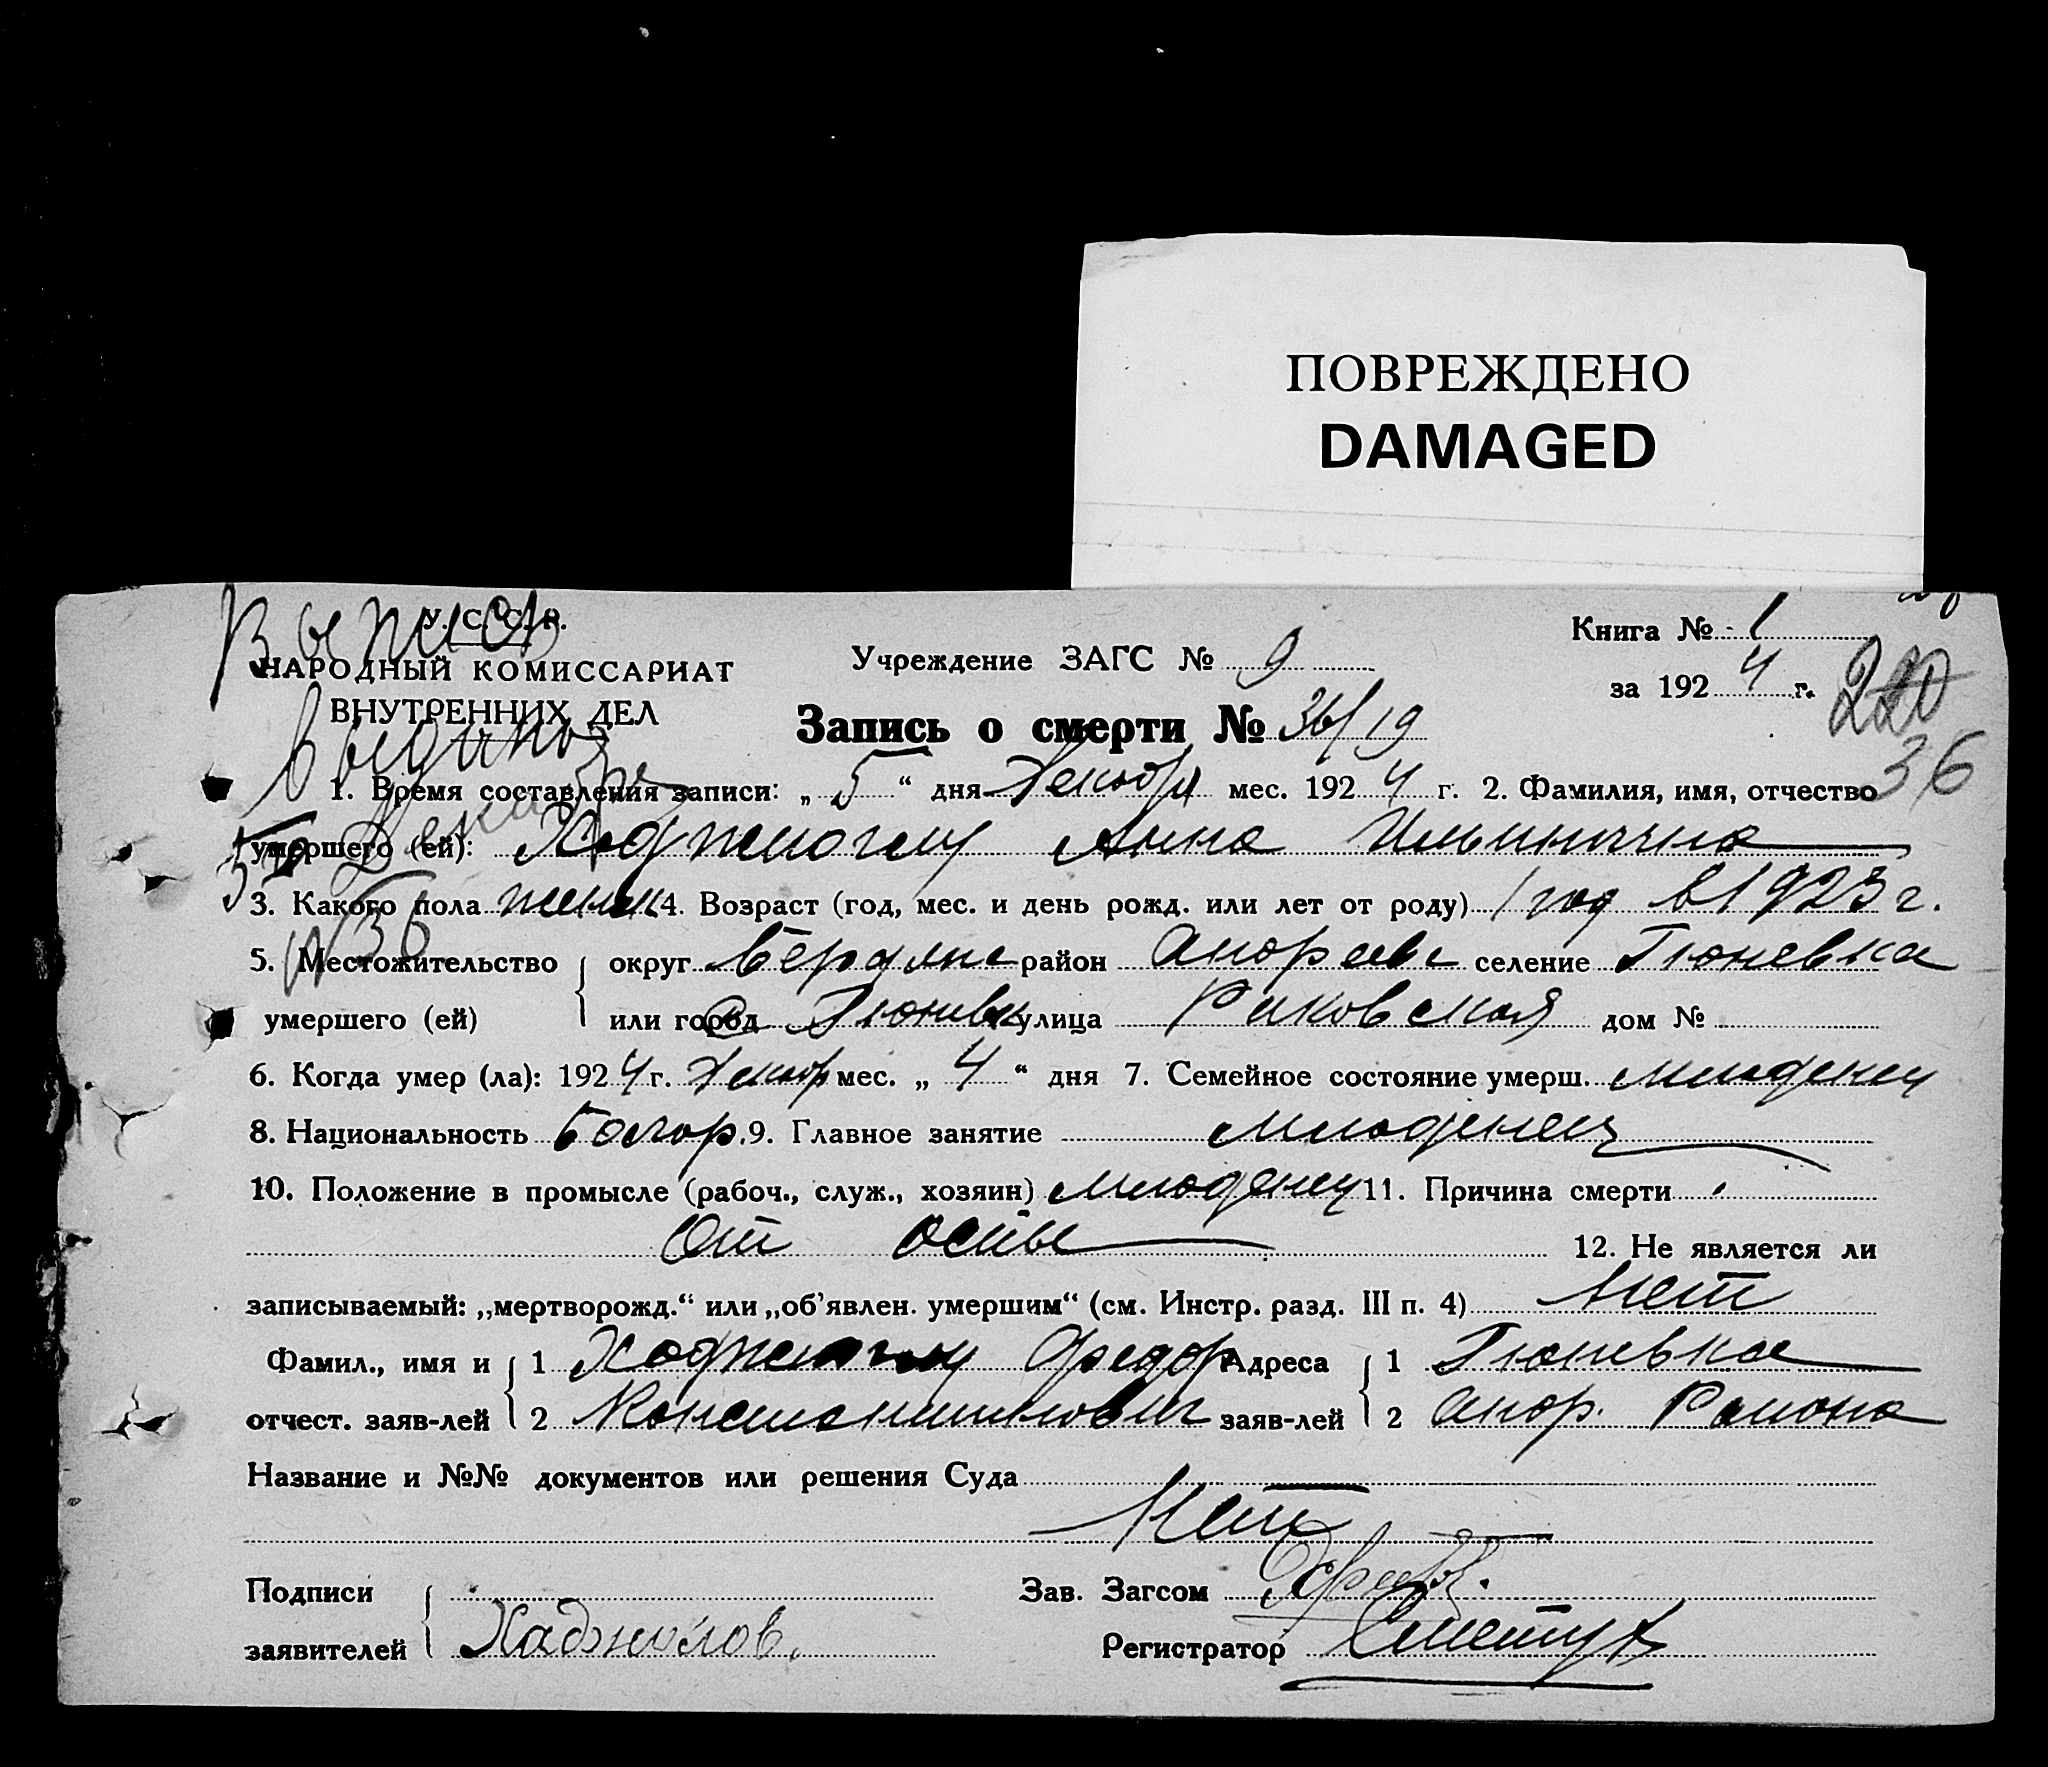 ПОВРЕЖДЕНО
DAMAGED
Выпись
У. С. С. Р.
НАРОДНЫЙ КОМИССАРИАТ
ВНУТРЕННИХ ДЕЛ
Учреждение ЗАГС № 9
Книга № 1
за 1924 г.
220
36
Запись о смерти № 36/19
1. Время составления записи: „5“ дня Декабря мес. 1924 г. 2. Фамилия, имя, отчество
умершего (ей): Ходжиоглу Анна Ильинична
3. Какого пола женск 4. Возраст (год, мес. и день рожд. или лет от роду) 1 год в 1923 г.
№ 36
5. Местожительство округ Бердянс район Андреевс селение Гюневка
умершего (ей) или город с Гюневк улица Раковская дом №
6. Когда умер (ла): 1924 г. Декабр мес. „4“ дня 7. Семейное состояние умерш. младенец
8. Национальность Болгар. 9. Главное занятие младенец
10. Положение в промысле (рабоч., служ., хозяин) младенец 11. Причина смерти
От оспы 12. Не является ли
записываемый: „мертворожд.“ или „об'явлен. умершим“ (см. Инстр. разд. III п. 4) Нет
Фамил., имя и 1 Ходжиоглу Федор Адреса 1 Гюневка
отчест. заяв-лей 2 Константинович заяв-лей 2 Андр. Района
Название и №№ документов или решения Суда
Нет
Подписи Зав. Загсом
заявителей Хаджиолов. Регистратор